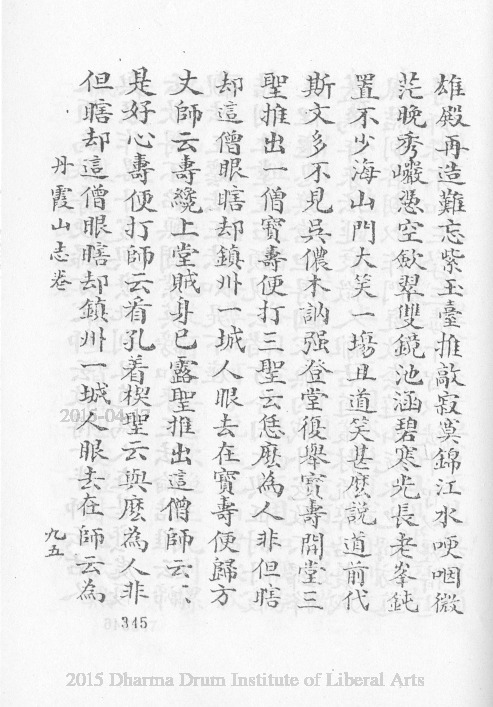 雄殿再造難忘紫玉臺推敲寂寞錦江水哽咽微
茫晚秀巖憑空歛翠雙鏡池涵碧寒光長老峯鈍
置不少海山門大笑一場且道笑甚麽說道前代
斯文多不見吳儂木訥强登堂復舉寳壽開堂三
聖推出一僧寳壽便打三聖云恁麽為人非但瞎
却這僧眼瞎却鎮州一城人眼去在寳壽便歸方
丈師云壽纔上堂賊身已露聖推出這僧師云、
是好心壽便打師云看孔着楔聖云與麽為人非
但瞎却這僧眼瞎却鎮州一城人眼去在師云為
丹霞山志卷
九五
345
2015-04-17
2015 Dharma Drum Institute of Liberal Arts